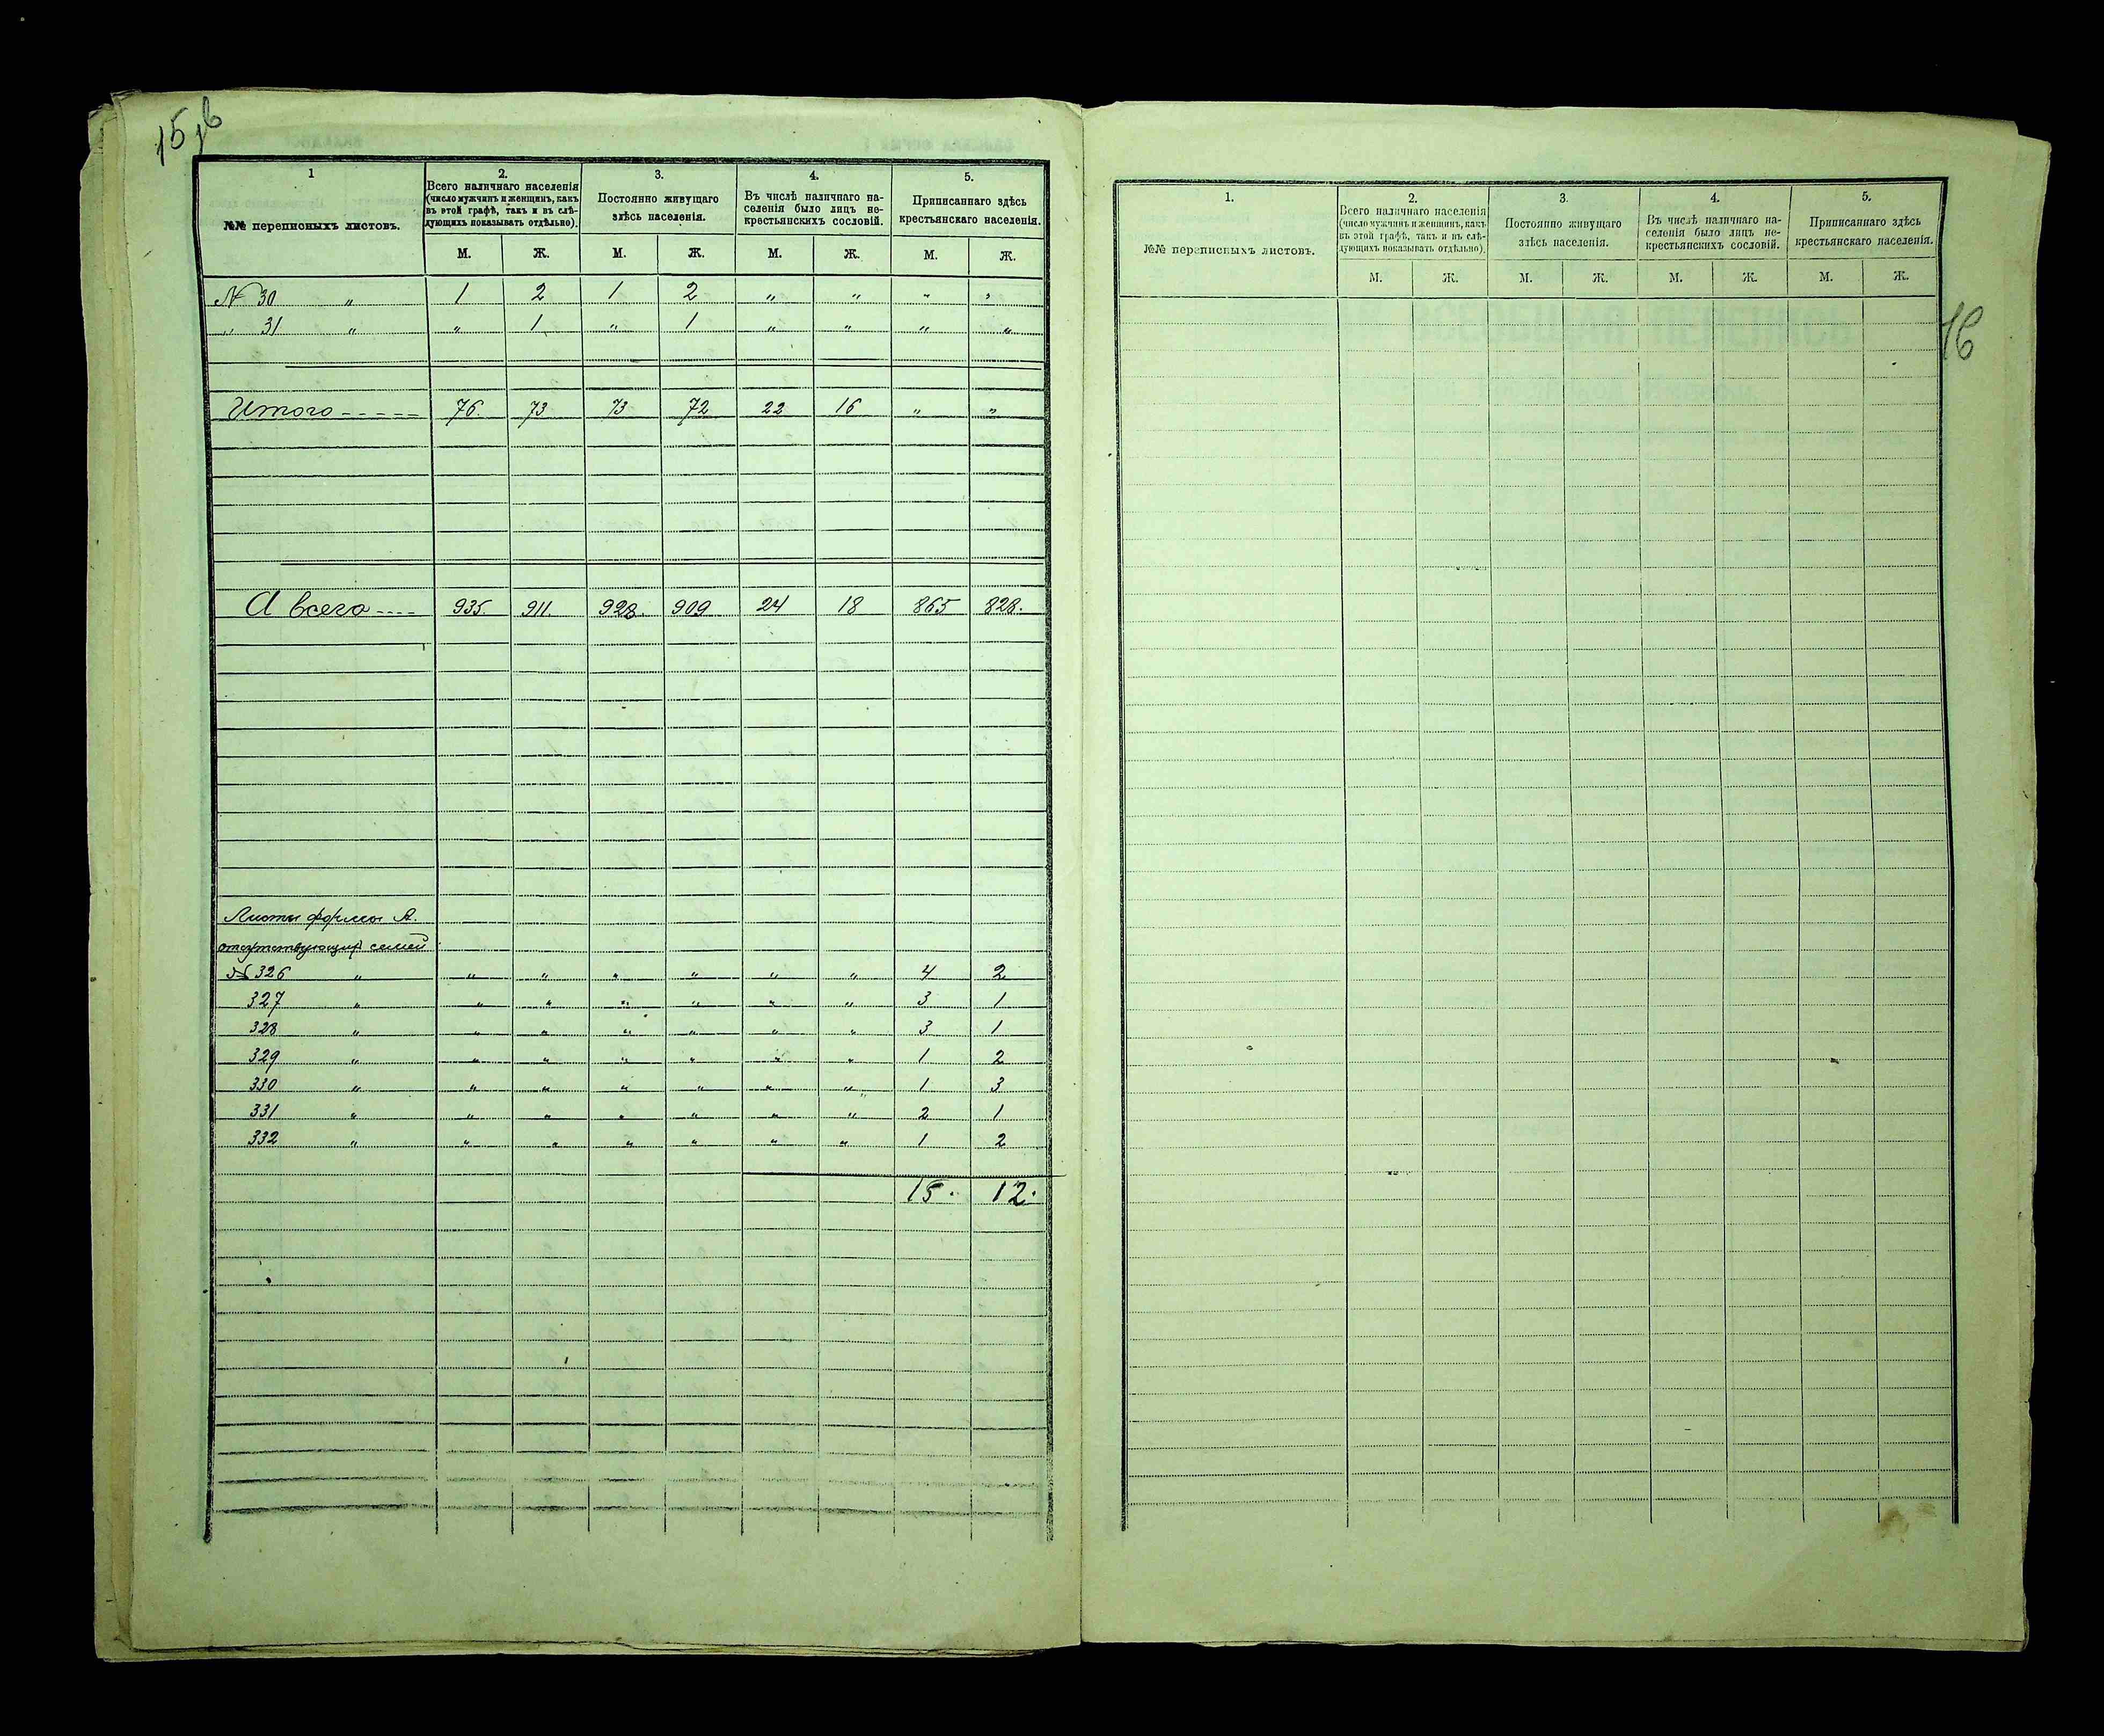 15об
1
№№ переписныхъ листовъ.
2.
Всего наличнаго населенія
(число мужчинъ и женщинъ, какъ
въ этой графѣ, такъ и въ слѣ-
дующихъ показывать отдѣльно).
3.
Постоянно живущаго
здѣсь населенія.
4.
Въ числѣ наличнаго на-
селенія было лицъ не-
крестьянскихъ сословій.
5.
Приписаннаго здѣсь
крестьянскаго населенія.
М. Ж. М. Ж. М. Ж. М. Ж.
№ 30 " 1 2 1 2 " " " "
" 31 " " 1 " 1 " " " "
Итого - - - - - 76. 73 73 72 22 16 " "
А всего - - - - 935. 911. 928. 909 24 18 865 828.
Листы формы А.
отсутствующихъ семей
№ 326 " " " " " " " 4 2
327 " " " " " " " 3 1
328 " " " " " " " 3 1
329 " " " " " " " 1 2
330 " " " " " " " 1 3
331 " " " " " " " 2 1
332 " " " " " " " 1 2
15. 12.
16
1.
№№ переписныхъ листовъ.
2.
Всего наличнаго населенія
(число мужчинъ и женщинъ, какъ
въ этой графѣ, такъ и въ слѣ-
дующихъ показывать отдѣльно).
3.
Постоянно живущаго
здѣсь населенія.
4.
Въ числѣ наличнаго на-
селенія было лицъ не-
крестьянскихъ сословій.
5.
Приписаннаго здѣсь
крестьянскаго населенія.
М. Ж. М. Ж. М. Ж. М. Ж.